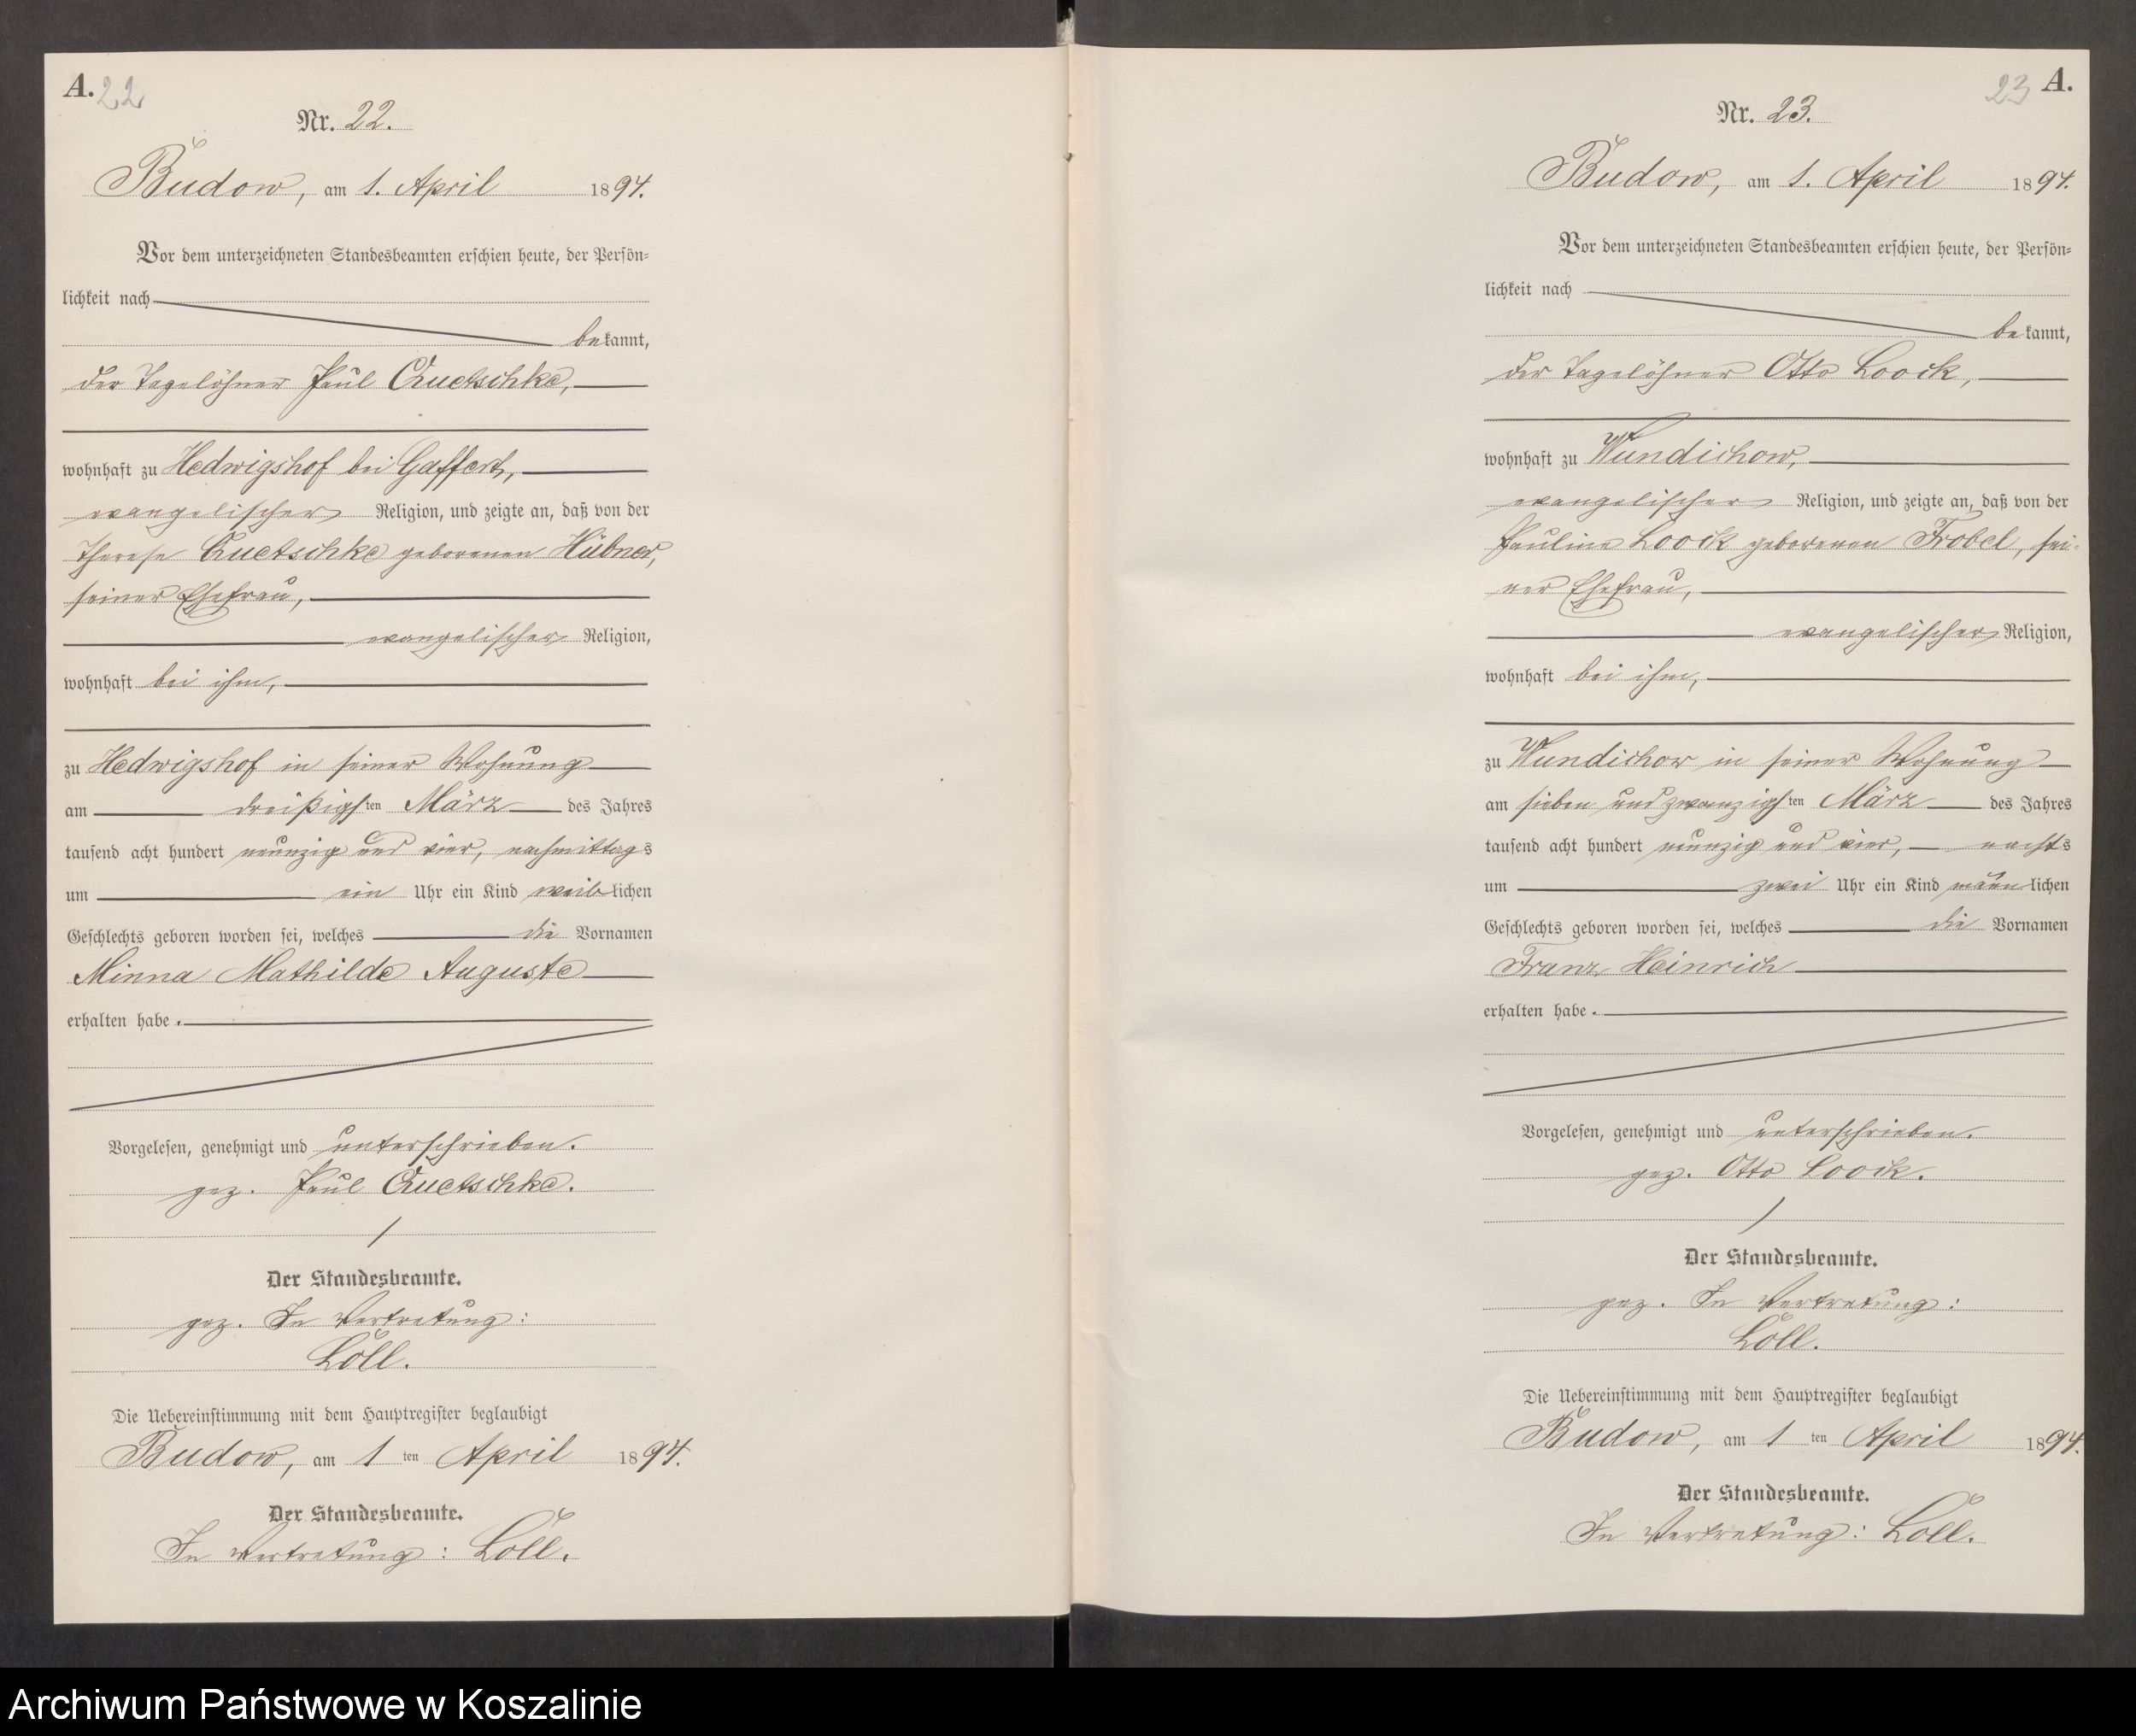 A. 22
Nr. 22.
Budow, am 1. April 1894.
Vor dem unterzeichneten Standesbeamten erschien heute, der Persön-
lichkeit nach
bekannt,
der Tagelöhner Paul Quetschke,
wohnhaft zu Hedwigshof bei Gaffert,
evangelischer Religion, und zeigte an, daß von der
Therese Quetschke geborenen Hübner,
seiner Ehefrau,
evangelischer Religion,
wohnhaft bei ihm,
zu Hedwigshof in seiner Wohnung
am dreißigsten März des Jahres
tausend acht hundert neunzig und vier, nachmittags
um ein Uhr ein Kind weiblichen
Geschlechts geboren worden sei, welches die Vornamen
Minna Mathilde Auguste
erhalten habe.
Vorgelesen, genehmigt und unterschrieben.
gez. Paul Quetschke.
Der Standesbeamte.
gez. In Vertretung:
Löll.
Die Uebereinstimmung mit dem Hauptregister beglaubigt
Budow, am 1 ten April 1894.
Der Standesbeamte.
In Vertretung: Löll.
23 A.
Nr. 23.
Budow, am 1. April 1894.
Vor dem unterzeichneten Standesbeamten erschien heute, der Persön-
lichkeit nach
bekannt,
der Tagelöhner Otto Loock,
wohnhaft zu Wundichow,
evangelischer Religion, und zeigte an, daß von der
Pauline Loock geborenen Frobel, sei-
ner Ehefrau,
evangelischer Religion,
wohnhaft bei ihm,
zu Wundichow in seiner Wohnung
am sieben und zwanzigsten März des Jahres
tausend acht hundert neunzig und vier, nachts
um zwei Uhr ein Kind männlichen
Geschlechts geboren worden sei, welches die Vornamen
Franz Heinrich
erhalten habe.
Vorgelesen, genehmigt und unterschrieben.
gez. Otto Loock.
Der Standesbeamte.
gez. In Vertretung:
Löll.
Die Uebereinstimmung mit dem Hauptregister beglaubigt
Budow, am 1 ten April 1894.
Der Standesbeamte.
In Vertretung: Löll.
Archiwum Państwowe w Koszalinie